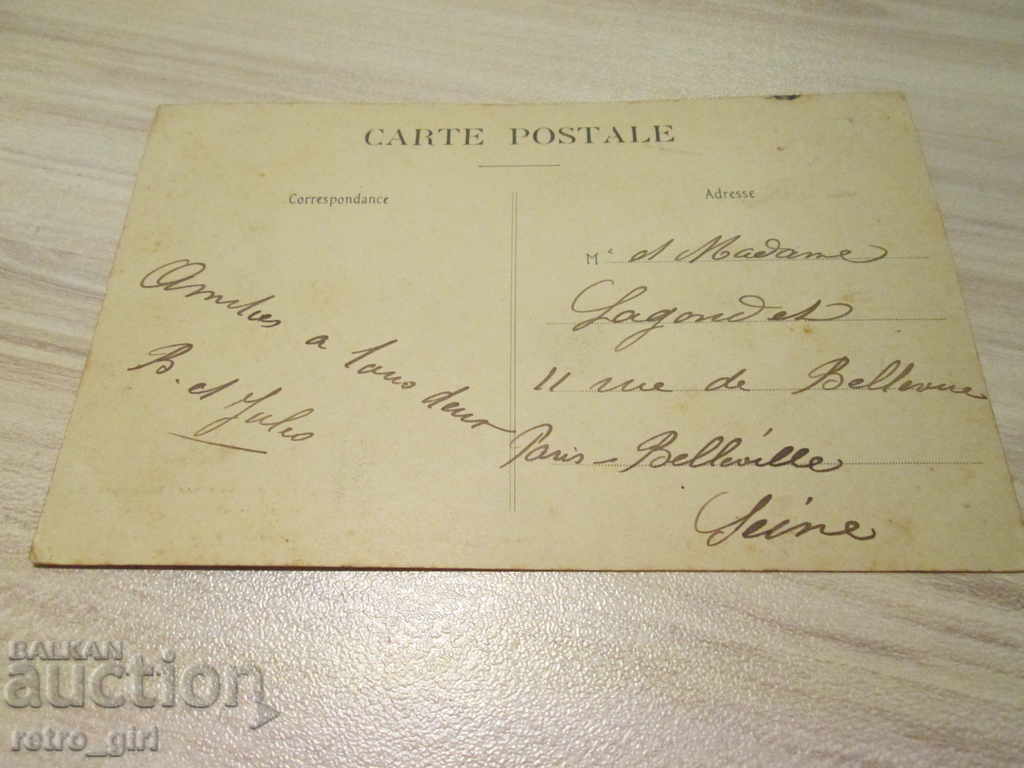 CARTE POSTALE
Correspondance
Amitiés a tous deux
B. et Jules
Adresse
Mr et Madame
Lagondet
11 rue de Bellevue
Paris - Belléville
Seine
BALKAN
auction
retro_girl